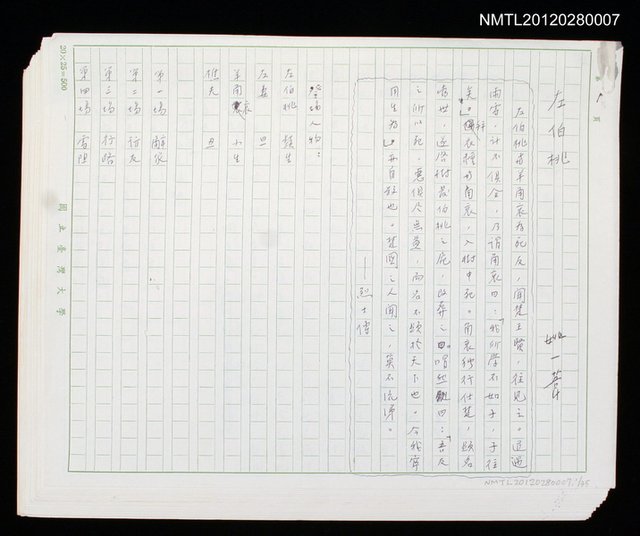 NMTL20120280007
左伯桃
如一 著
左伯桃與羊角哀為死友,聞楚王賢,往見之。道遇
雨雪,計不俱全,乃謂角哀曰:「我所學不如子,子往
矣。」併衣糧與角哀,入樹中死。角哀獨行仕楚,顯名
當世,啟樹發伯桃之屍,改葬之。喟然曰:「吾友
之所以死,惡俱尽無益,而名不顯於天下也。今我
用生為」亦自殺也。楚國之人聞之,莫不流涕。
——烈士傳
登場人物:
左伯桃 鬚生
左妻 旦
羊角哀 小生
樵夫 丑
第一場 辭家
第二場 訪友
第三場 行路
第四場 雪阻
20×25=500
國立臺灣大學
頁
NMTL20120280007, 1/25